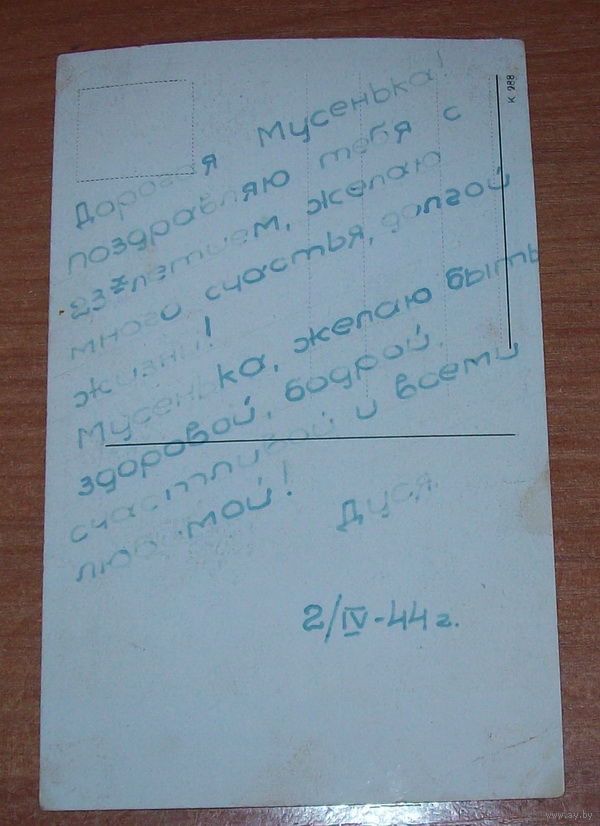 К 288
Дорогая Мусенька!
поздравляю тебя с
23х летием, желаю
много счастья, долгой
жизни!
Мусенька, желаю быть
здоровой, бодрой,
счастливой и всеми
любимой!
Дуся.
2/IV-44 г.
www.ay.by